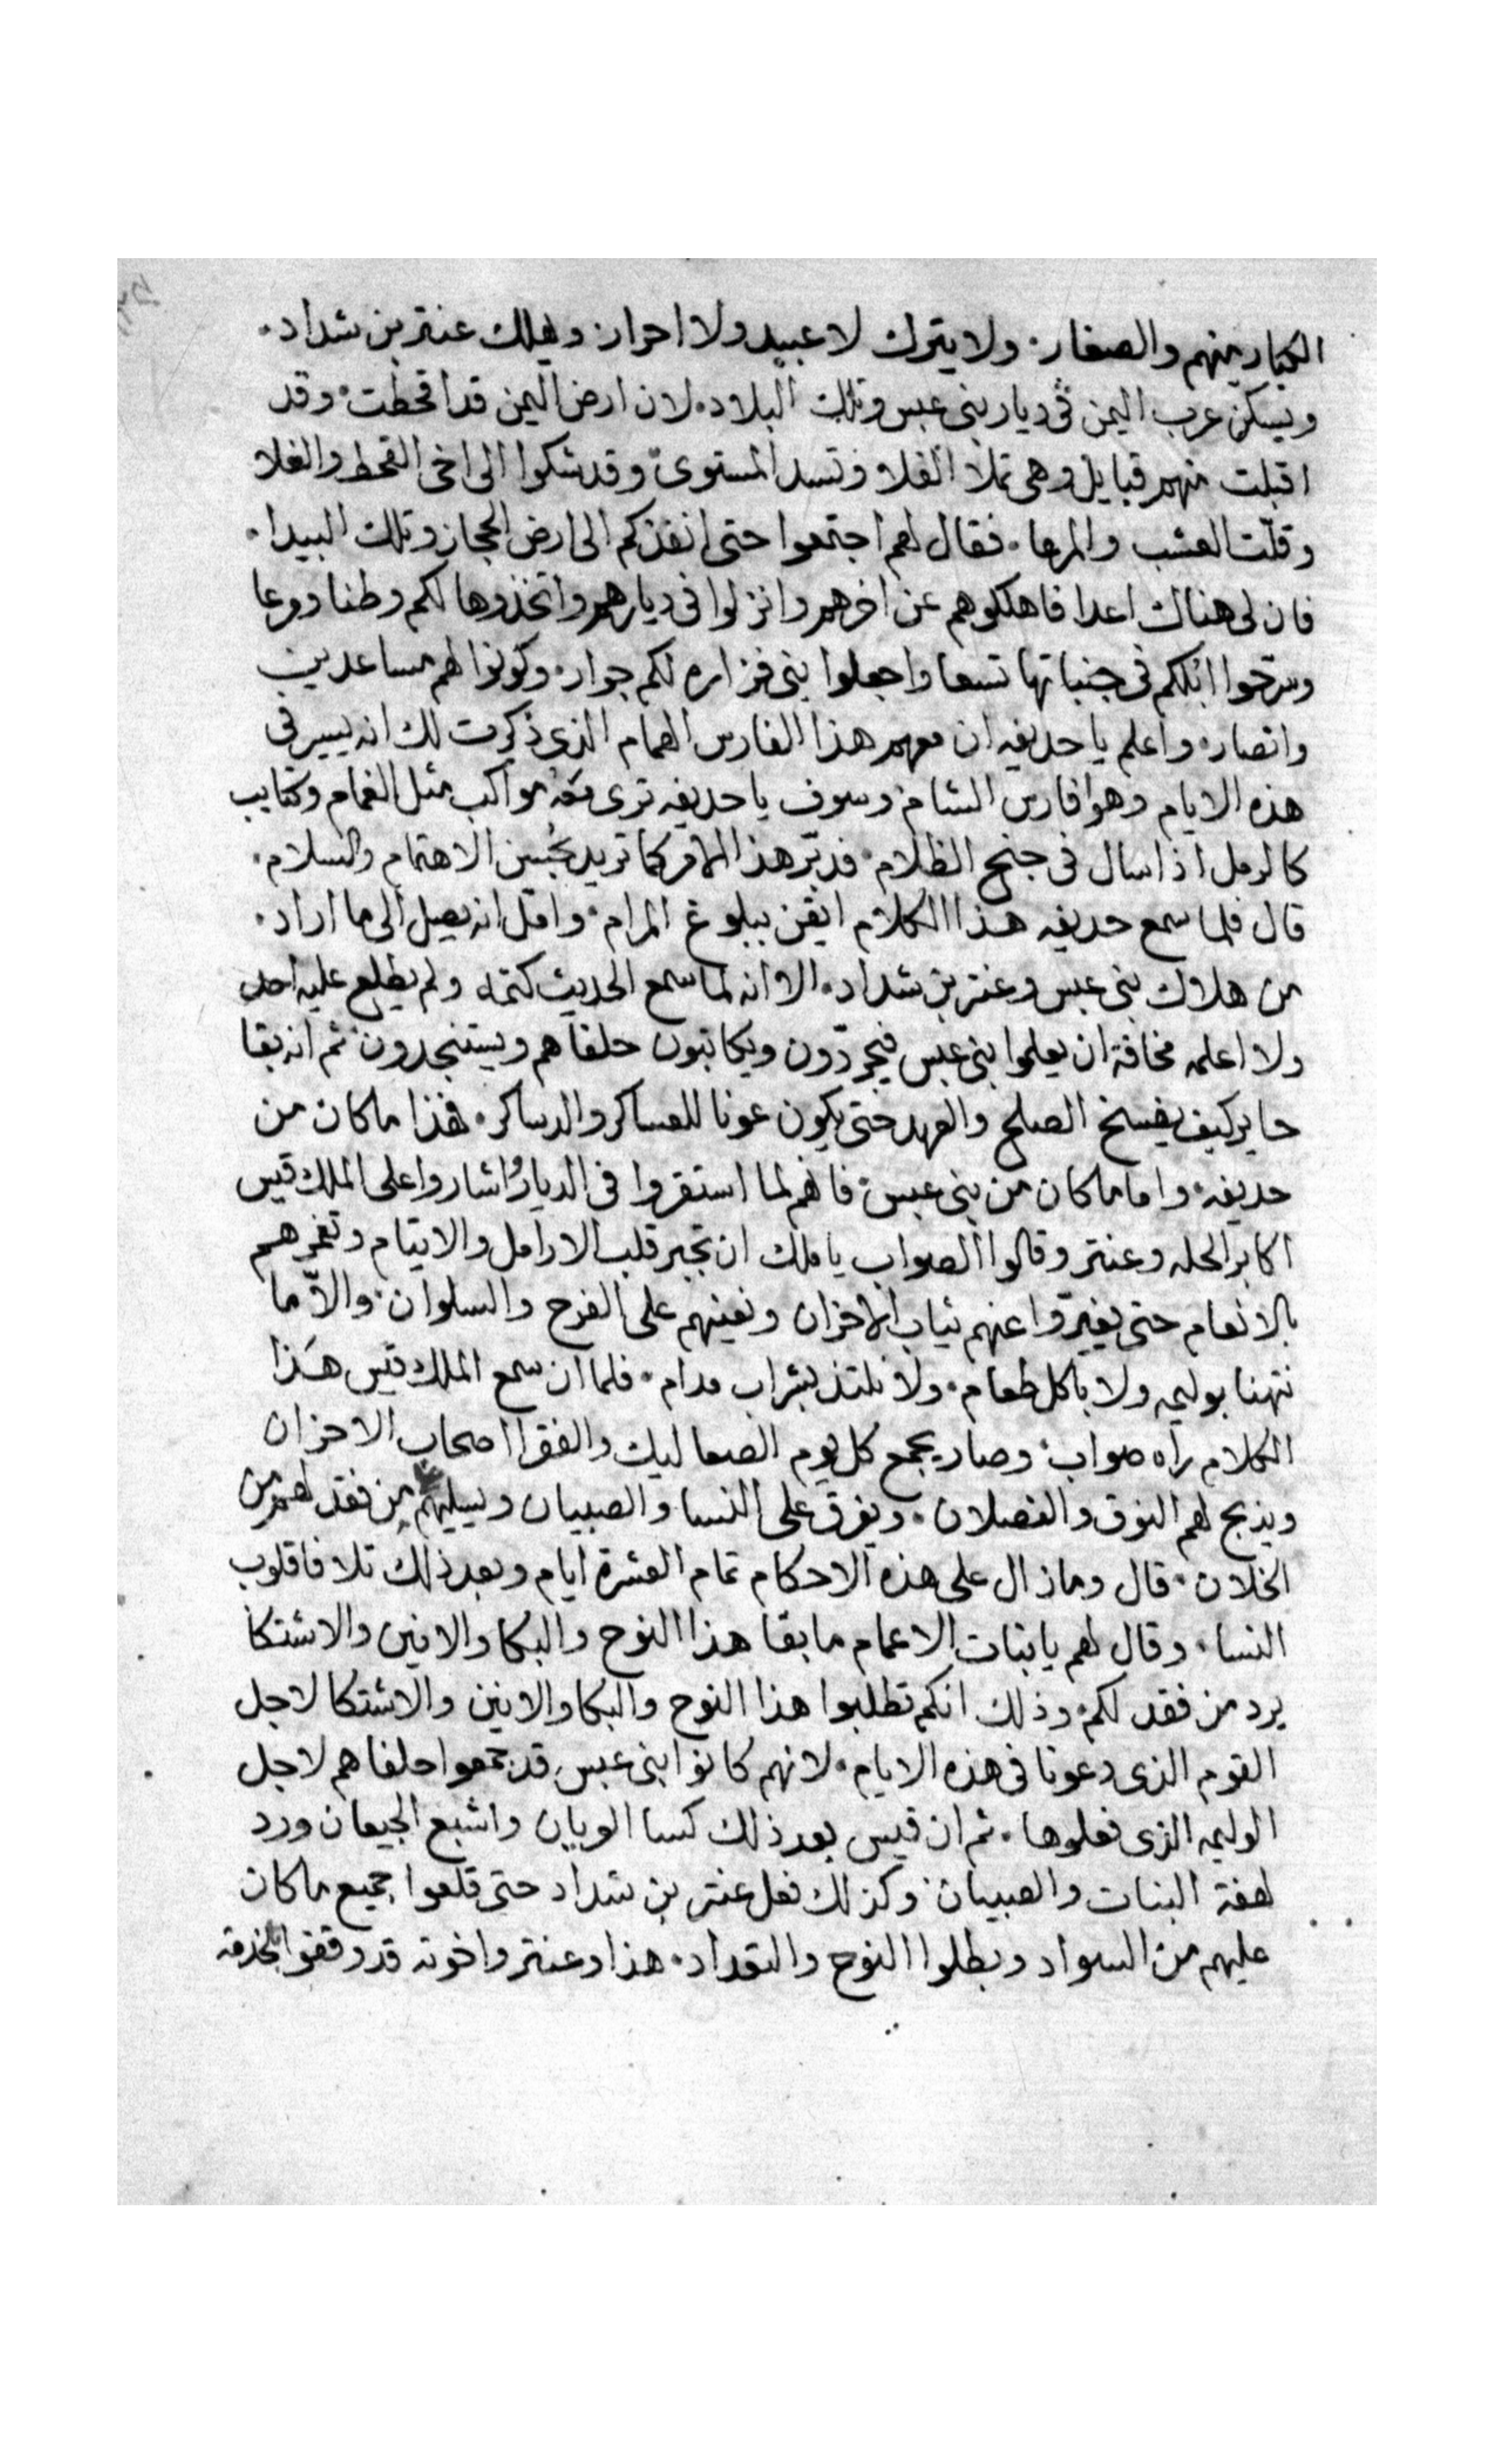 الكبار منهم والصغار ولا يترك لا عبيد ولا احرار ويهلك عنتر بن شداد
ويسكن عرب اليمن في ديار بني عبس وتلك البلاد لان ارض اليمن قد اقحطت وقد
اقبلت منهم قبايل وهي تملا الفلا وتسد المستوى وقد شكوا الى اخي القحط والغلا
وقلت العشب والمرعا فقال لهم اجتمعوا حتى انفذكم الى ارض الحجاز وتلك البيدا
فان لي هناك اعدا فاهلكوهم عن اخرهم وانزلوا في ديارهم واتخذوها لكم وطنا ومرعا
وسرحوا ابلكم في جنباتها تسعا واجعلوا بني فزاره لكم جوار وكونوا لهم مساعدين
وانصار واعلم يا حديفه ان معهم هذا الفارس الهمام الذي ذكرت لك انه يسير في
هذه الايام وهوا فارس الشام وسوف يا حديفه ترى معه مواكب مثل الغمام وكتايب
كالرمل اذا سال في جنح الظلام فدبّر هذا الامر كما تريد بحُسن الاهتمام والسلام
قال فلما سمع حديفه هذا الكلام ايقن ببلوغ المرام وامّل انه يصل الى ما اراد
من هلاك بني عبس وعنتر بن شداد الا انه لما سمع الحديث كتمه ولم يطلع عليه احد
ولا اعلمه مخافة ان يعلموا بني عبس فيجردّون ويكاتبون حلفاهم ويستنجدون ثم انه بقا
حاير كيف يفسخ الصلح والعهد حتى يكون عونا للعساكر والدساكر فهذا ما كان من
حديفه واما ما كان من بني عبس فانهم لما استقروا في الديار اشاروا على الملك قيس
اكابر الحله وعنتر وقالوا الصواب يا ملك ان تجبر قلب الارامل والايتام وتغمرهم
بالانعام حتى يغيرّوا عنهم ثياب الاحزان ونعينهم على الفرح والسلوان والاّ ما
نتهنا بوليمه ولا باكل طعام ولا نلتذ بشراب مدام فلما ان سمع الملك قيس هذا
الكلام راه صواب وصار يجمع كل يوم الصعاليك والفقرا اصحاب الاحزان
ويذبح لهم النوق والفصلان ويفرق على النسا والصبيان ويسليهم من فقد لهم من
الخلان قال وما زال على هذه الاحكام تمام العشرة ايام وبعد ذلك تلافا قلوب
النسا وقال لهم يا بنات الاعمام ما بقا هذا النوح والبكا والانين والاشتكا
يرد من فقد لكم وذلك انكم تطلبوا هذا النوح والبكا والانين والاشتكا لاجل
القوم الذي دعونا في هذه الايام لانهم كانوا بني عبس قد جمعوا حلفاهم لاجل
الوليمه الذي فعلوها ثم ان قيس بعد ذلك كسا العريان واشبع الجيعان ورد
لهفة البنات والصبيان وكذلك فعل عنتر بن شداد حتى قلعوا جميع ما كان
عليهم من السواد وبطلوا النوح والتعداد هذا وعنتر واخوته قد وقفوا بخدمة